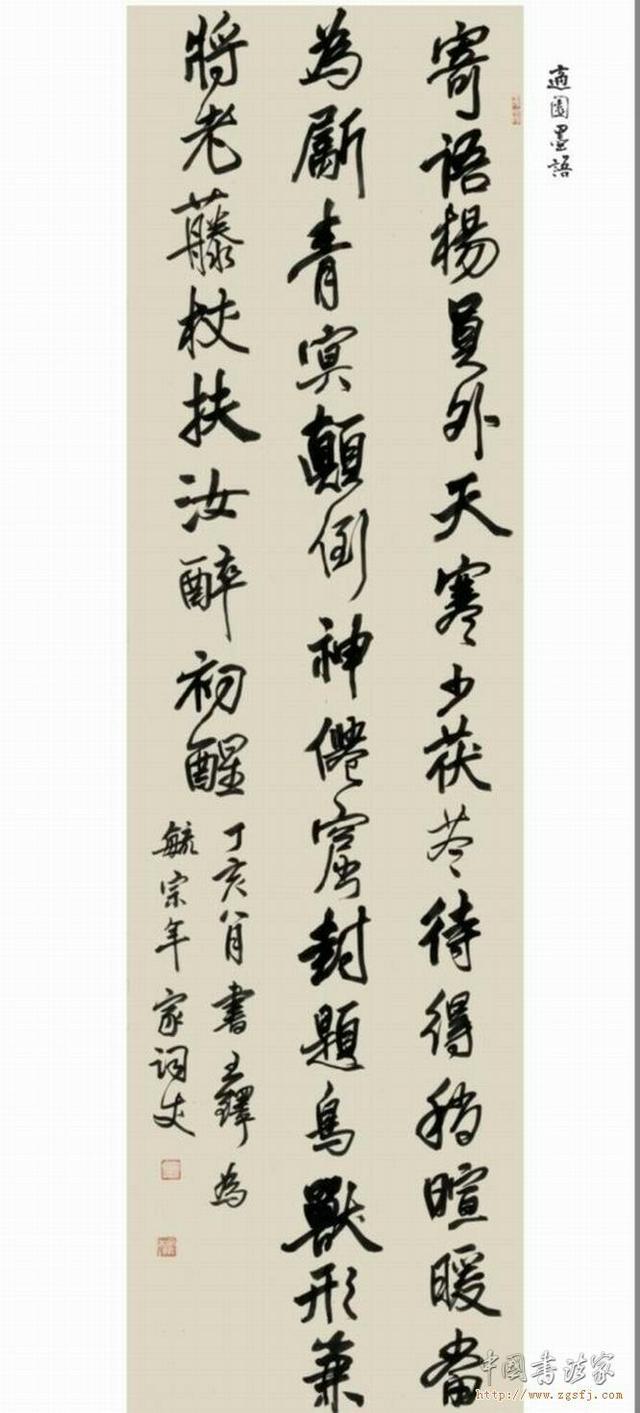 適園墨語
寄語楊員外天寒少茯苓待得稍暄暖當
為斸青冥顛倒神僊窟封題鳥獸形兼
將老藤杖扶汝醉初醒
丁亥八月書王鐸為
毓宗年家詞丈
中國書法家
http://www.zgsfj.com